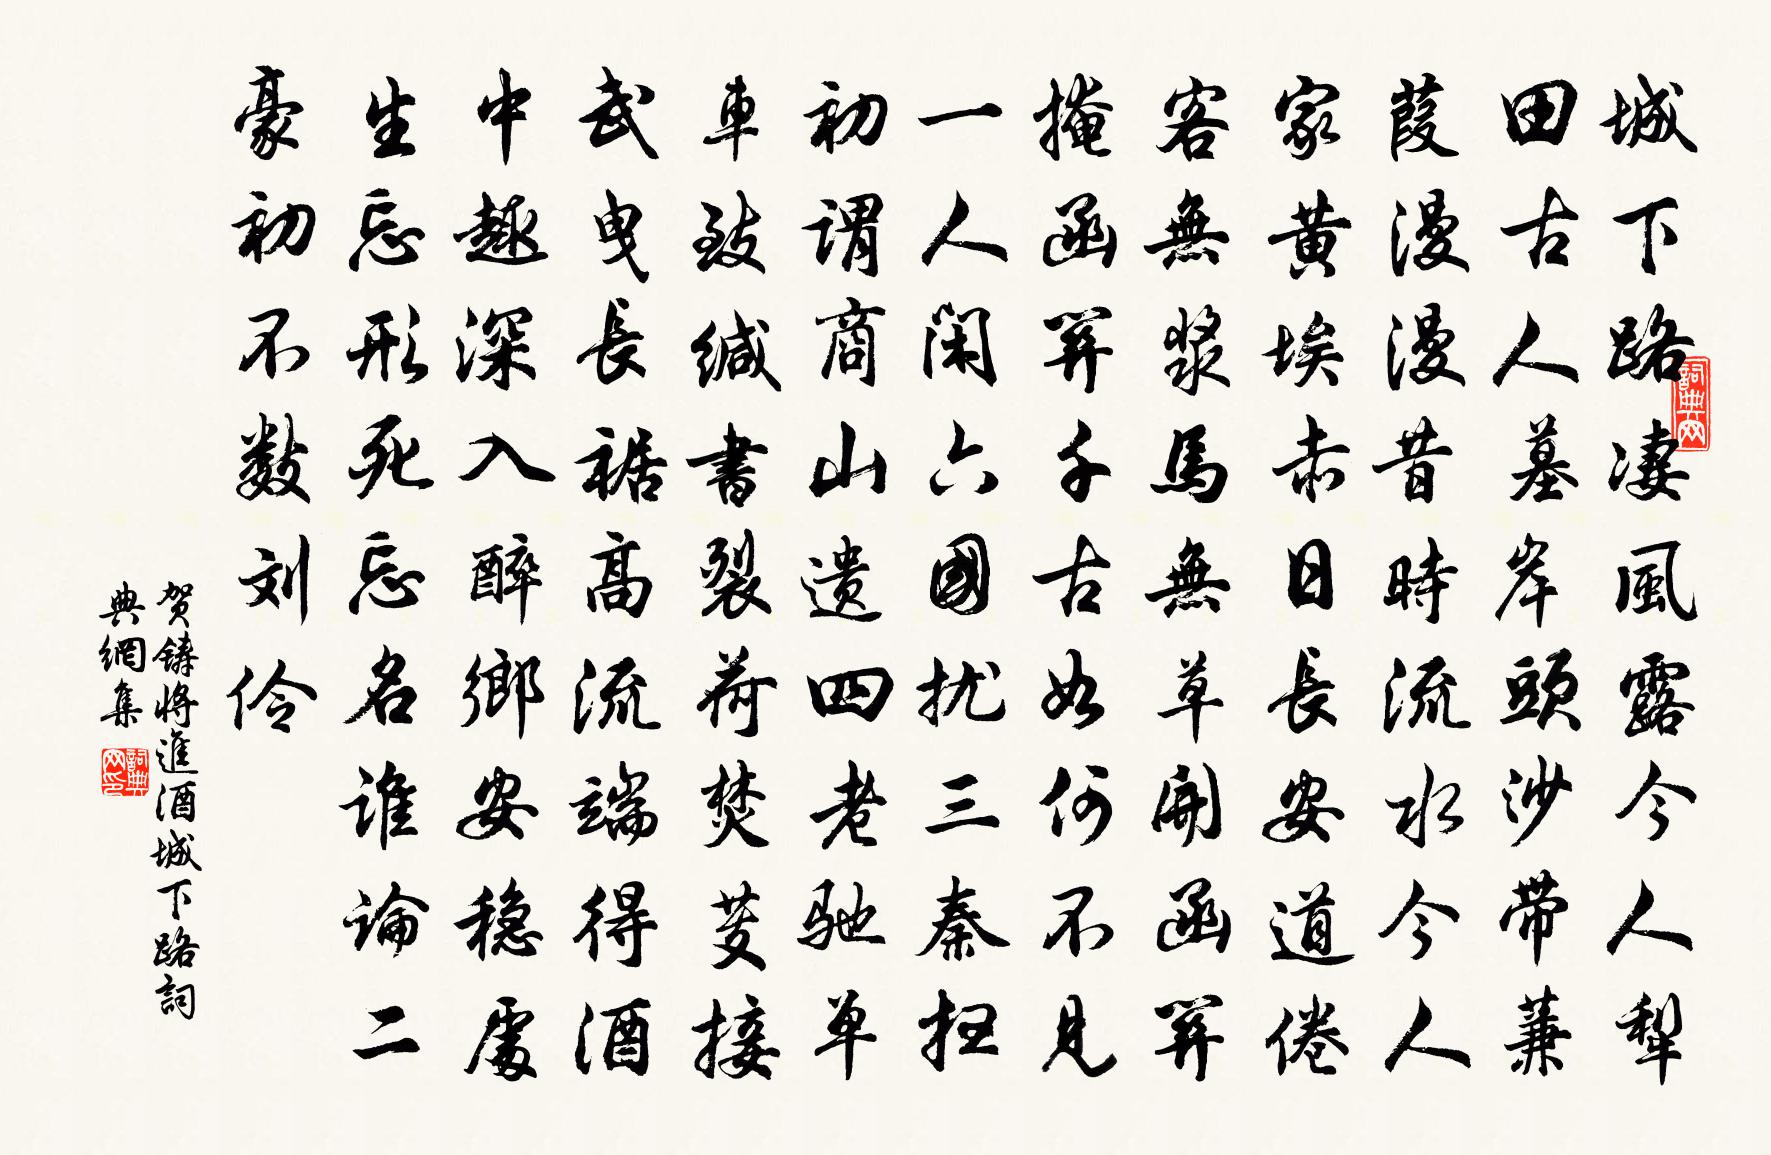 城下路凄風露今人犁
田古人墓岸頭沙帶蒹
葭漫漫昔時流水今人
家黃埃赤日長安道倦
客無漿馬無草開函關
掩函關千古如何不見
一人閑六國扰三秦扫
初謂商山遺四老驰单
車致缄書裂荷焚芰接
武曳長裾高流端得酒
中趣深入醉鄉安穏處
生忘形死忘名谁論二
豪初不数刘伶
賀鑄將進酒城下路詞
典網集
詞典网
詞典网印